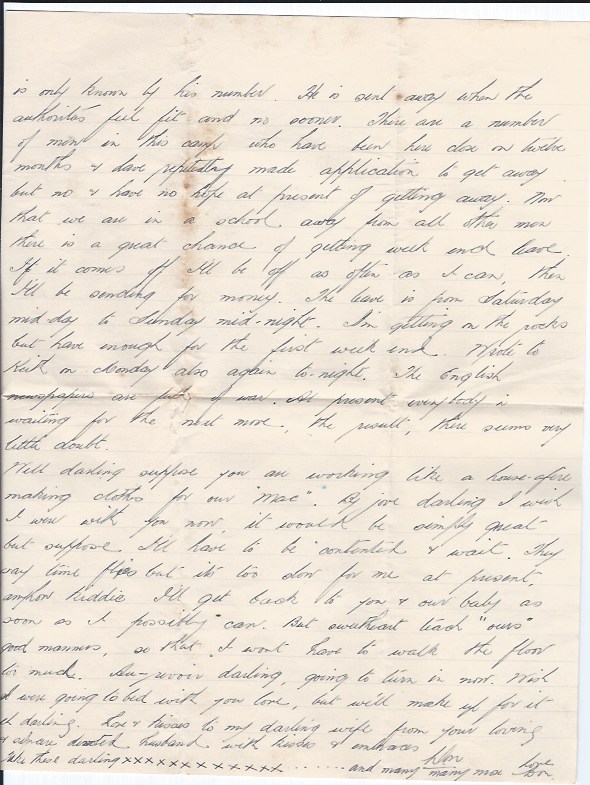 is only known by his number. He is sent away when the
authorities feel fit and no sooner. There are a number
of men in this camp who have been here close on twelve
months & have made application to get away
but no & have no hope at present of getting away. Now
that we are in a school, away from all other men
there is a great chance of getting week end leave.
If it comes off I'll be off as often as I can, then
I'll be sending for money. The leave is from Saturday
mid-day to Sunday mid-night. I'm getting on the rocks
but have enough for the first week end. Wrote to
Keith on Monday also again to-night. The English
newspapers are full of war. At present everybody is
waiting for the next move, the result, there seems very
little doubt.
Well darling suppose you are working like a house-afire
making cloths for our "Mac". By jove darling I wish
I were with you now, it would be simply great
but suppose I'll have to be contented & wait. They
say time flies but its too slow for me at present.
anyhow Kiddie I'll get back to you & our baby as
soon as I possibly can. But sweetheart teach "ours"
good manners, so that I wont have to walk the floor
too much. Au-revoir darling, going to turn in now. Wish
I were going to bed with you love, but we'll make up for it
darling. Love & Kisses to my darling wife from your loving
& sincere devoted husband with kisses & embraces Don
take these darling xxxxxxxxxxxxx ....... and many many more love Don.